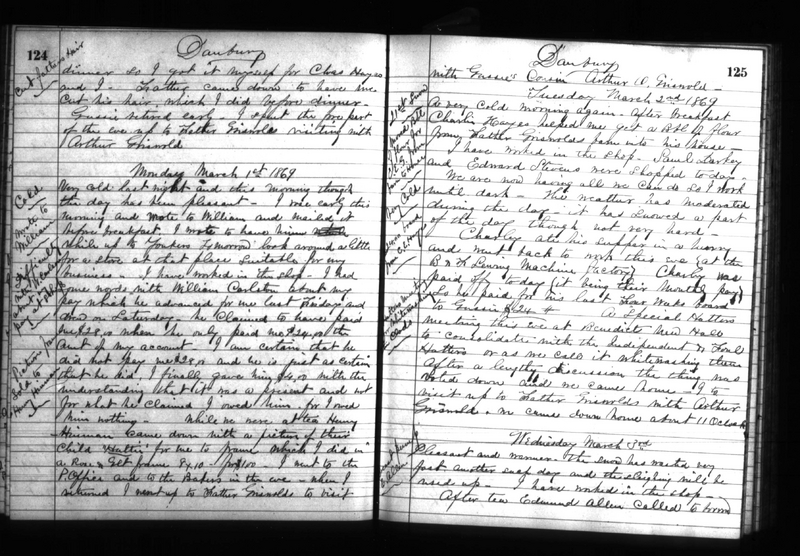 124
Danbury
Cut father's hair
dinner so I got it myself for Chas Hayes
and I - came down to have me
cut his hair which I did before dinner -
Gussie retired early - I spent the fore part
of the eve up to Father Griswolds visiting with
Arthur Griswold
Monday March 1st 1869
Cold
Very cold last night and this morning though
the day has been pleasant - I rose early this
Wrote to William
morning and wrote to William and mailed it
before breakfast. I wrote to have him
while up to Yonkers tomorrow look around a little
for a store at that place suitable for my
Difficulty
business - I have worked in the shop - I had
some words with William Carleton about my
pay which he advanced for me last Friday and
on Saturday. he claimed to have paid
me $28.00 when he only paid me $24.00 the
amt of my account. I am certain that he
did not pay me $28.00 and he is just as certain
Picture frame
that he did. I finally gave him $4.00 with the
sold to
understanding that it was a present and not
Henry
for what he claimed I owed him, for I owed
him nothing - While we were at tea Henry
came down with a picture of their
Child Hattie for me to frame which I did in
a Rose & Gilt frame 8x10 - for $1.00 I went to the
P. Office and to the Bakers in the eve - when I
returned I went up to Father Griswolds to visit
125
Danbury
with Gussie's Cousin Arthur O. Griswold -
Tuesday March 2nd 1869
A very cold morning again - After breakfast
Charlie Hayes helped me get a Bbl of flour
from Father Griswolds barn into his house -
I have worked in the shop - Paul Larkey
and Edward Stevens were stopped to-day -
We are now having all we can do so I work
Very Cold
until dark - The weather has moderated
during the day - it has snowed a part
of the day though not very hard -
Charley ate his supper in a hurry
and went back to work this eve (at the
B & F Sewing Machine Factory) Charly was
paid off to-day (it being their monthly pay)
So he paid for his last four weeks board
to Gussie $24 - A Special Hatters
meeting this eve at Benedicts New Hall
to consolidate with the Independent or Foul
Hatters or as we call it whitewashing them
After a lengthy discussion the thing was
voted down and we came home - I to
visit up to Father Griswolds with Arthur
Griswold - we came down home about 11 Oclock
Wednesday March 3rd
Pleasant and warmer - the snow has wasted very
fast another such day and the sleighing will be
used up - I have worked in the shop -
After tea Edmund Allen called to